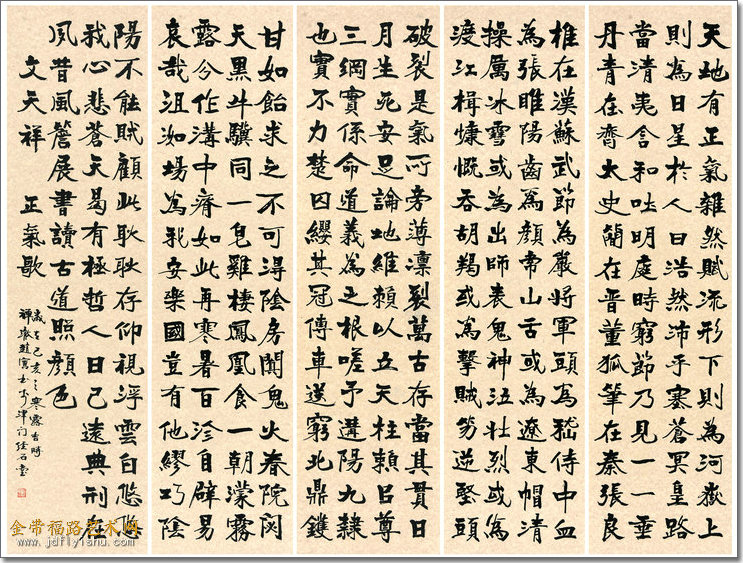 天地有正氣雜然賦流形下則為河嶽上
則為日星於人曰浩然沛乎塞蒼冥皇路
當清夷含和吐明庭時窮節乃見一一垂
丹青在齊太史簡在晉董狐筆在秦張良
椎在漢蘇武節為嚴將軍頭為嵇侍中血
為張睢陽齒為顏常山舌或為遼東帽清
操厲冰雪或為出師表鬼神泣壯烈或為
渡江楫慷慨吞胡羯或為擊賊笏逆豎頭
破裂是氣所旁薄凛裂萬古存當其貫日
月生死安足論地維賴以立天柱賴㠯尊
三綱實係命道義為之根嗟予遘陽九隸
也實不力楚囚纓其冠傳車送窮北鼎鑊
甘如飴求之不可得陰房闃鬼火春院閟
天黑牛驥同一皂雞棲鳳凰食一朝濛霧
露分作溝中瘠如此再寒暑百沴自辟易
哀哉沮洳場為我安樂國豈有他繆巧陰
陽不能賊顧此耿耿存仰視浮雲白悠悠
我心悲蒼天曷有極哲人日已遠典刑在
夙昔風簷展書讀古道照顏色
文天祥 正氣歌
歲在己亥之寒露吉時
金带福路艺术网
www.jdflyishu.com